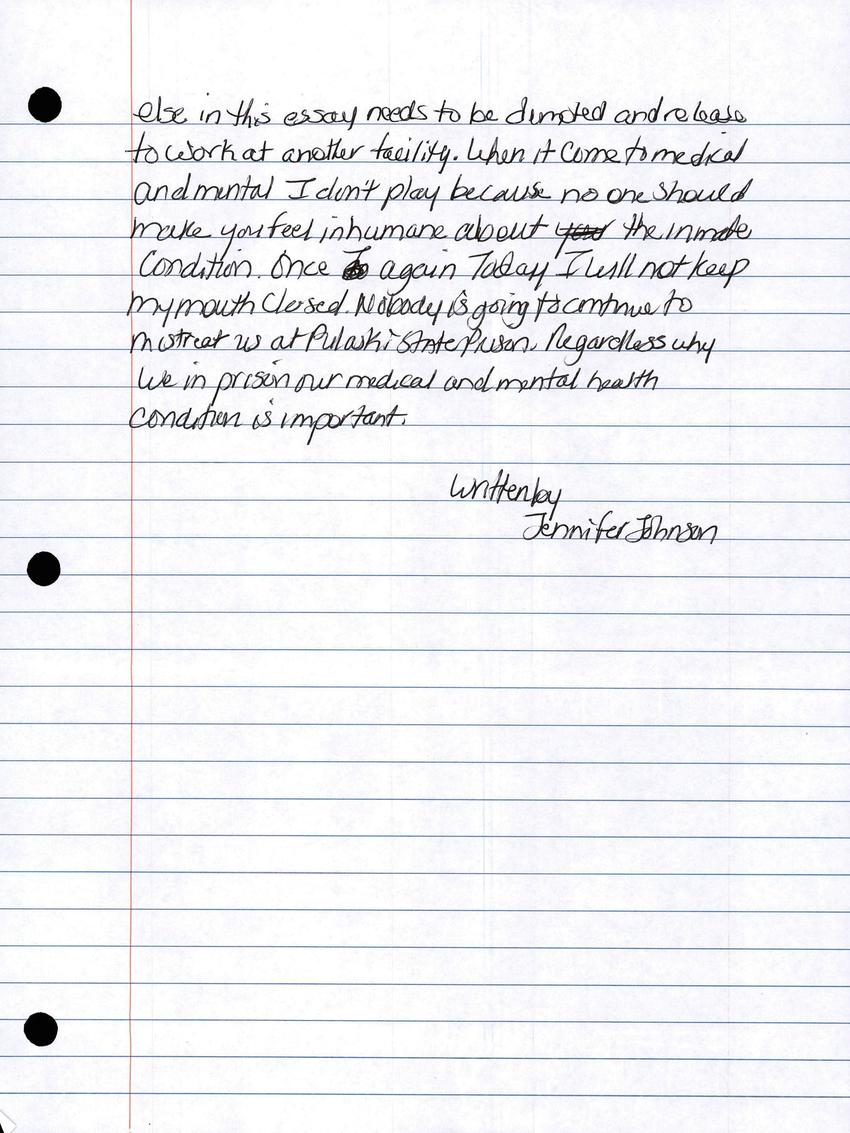 else in this essay needs to be dimoted and release
to work at another facility. When it Come to medical
and mental I don't play because no one should
make you feel inhumane about you the inmate
Condition. Once again Today I will not keep
my mouth Closed. Nobody is going to continue to
mistreat us at Pulaski State Prison. Regardless why
We in prison our medical and mental health
condition is important.
Written by
Jennifer Johnson